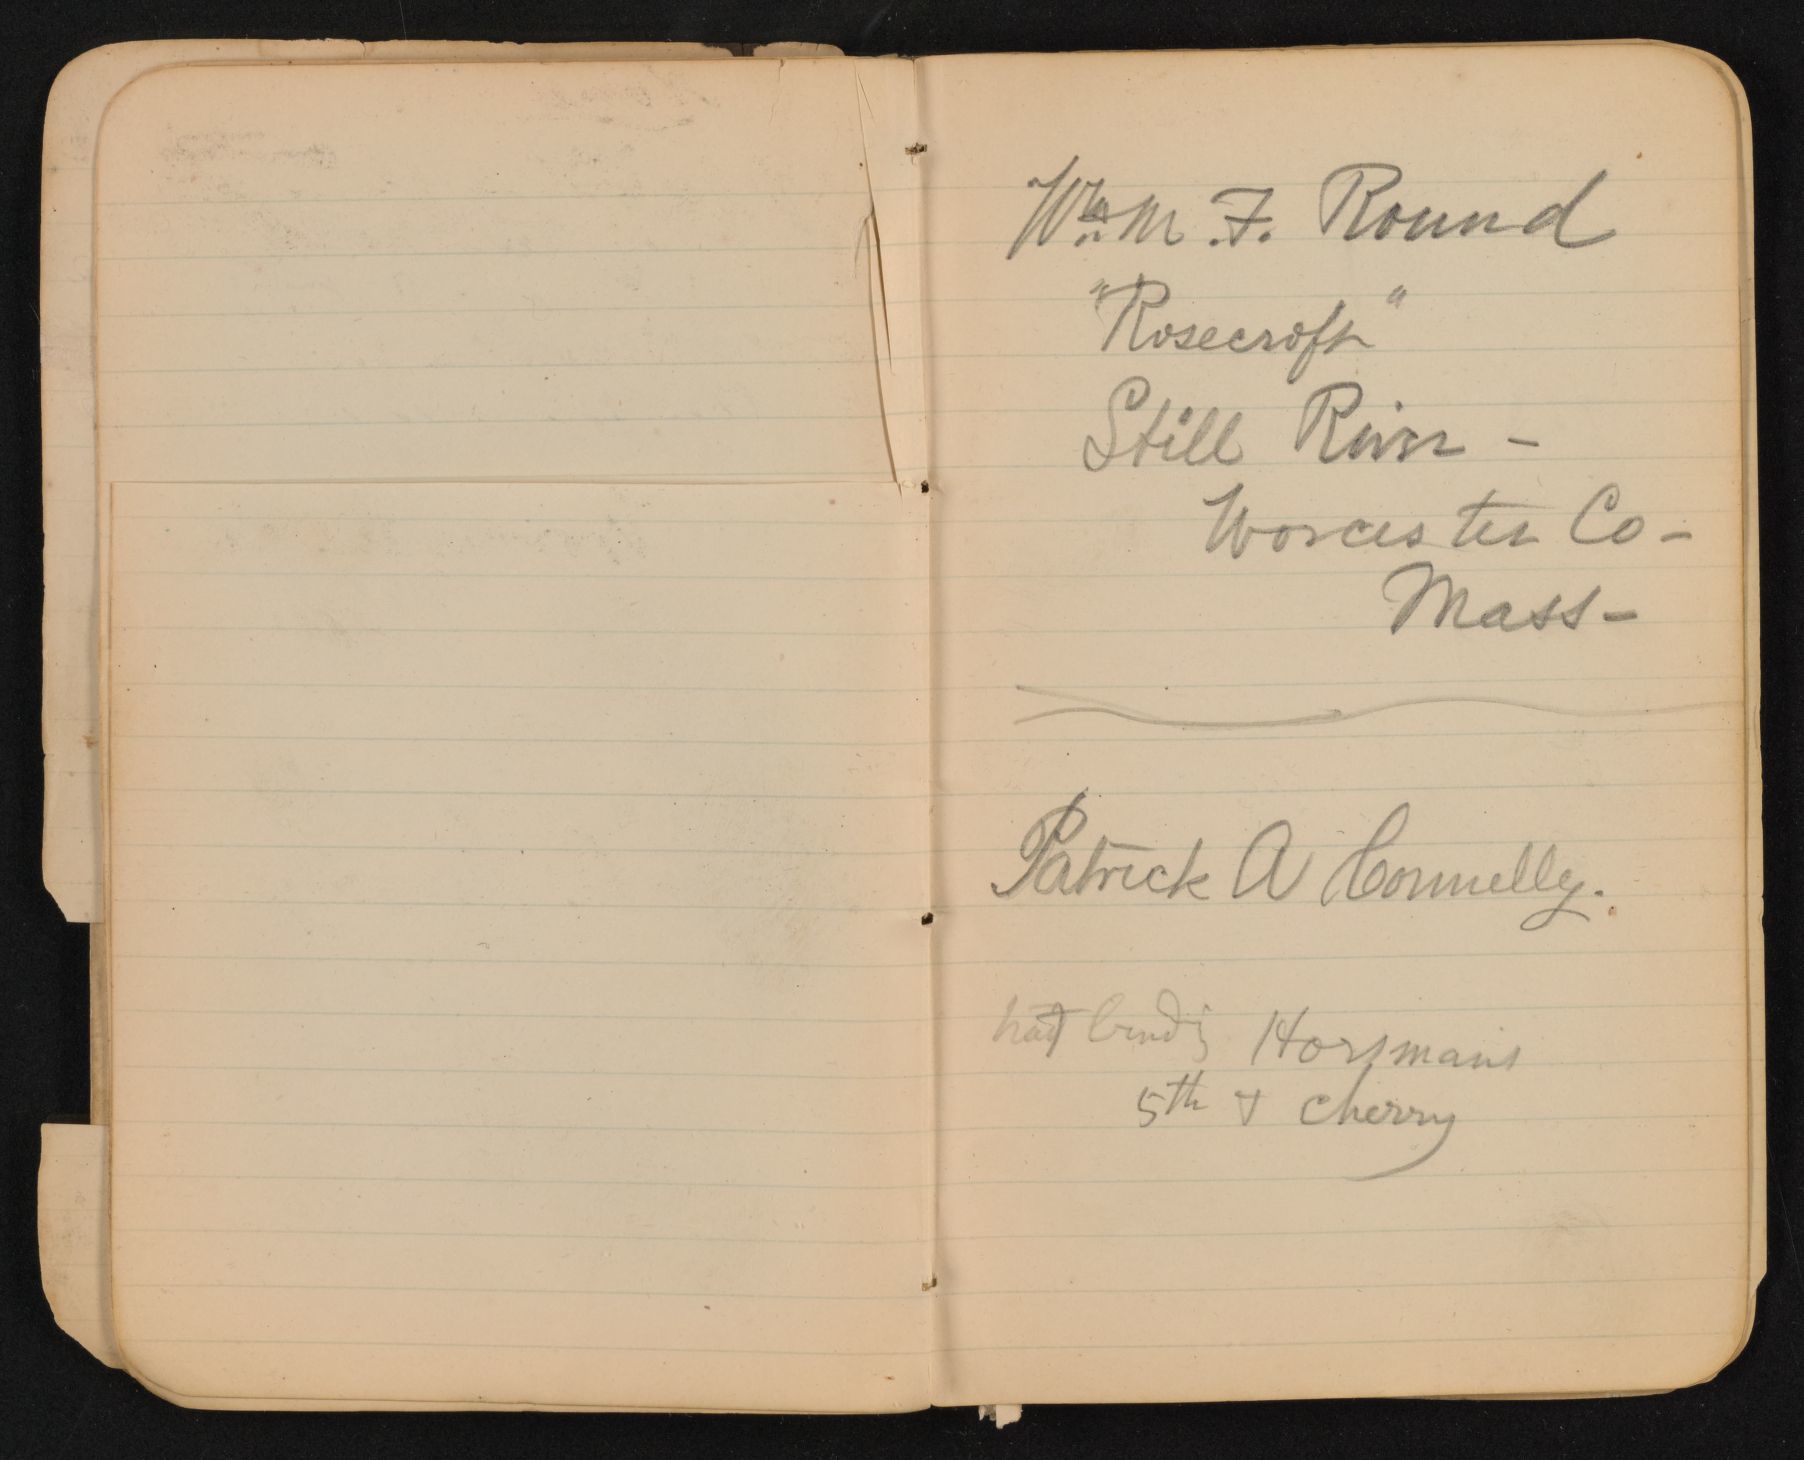 Wm M. F. Round
"Rosecroft"
Still River -
Worcester Co -
Mass -
Patrick A Connelly.
hat Horsmans
5th + Cherry